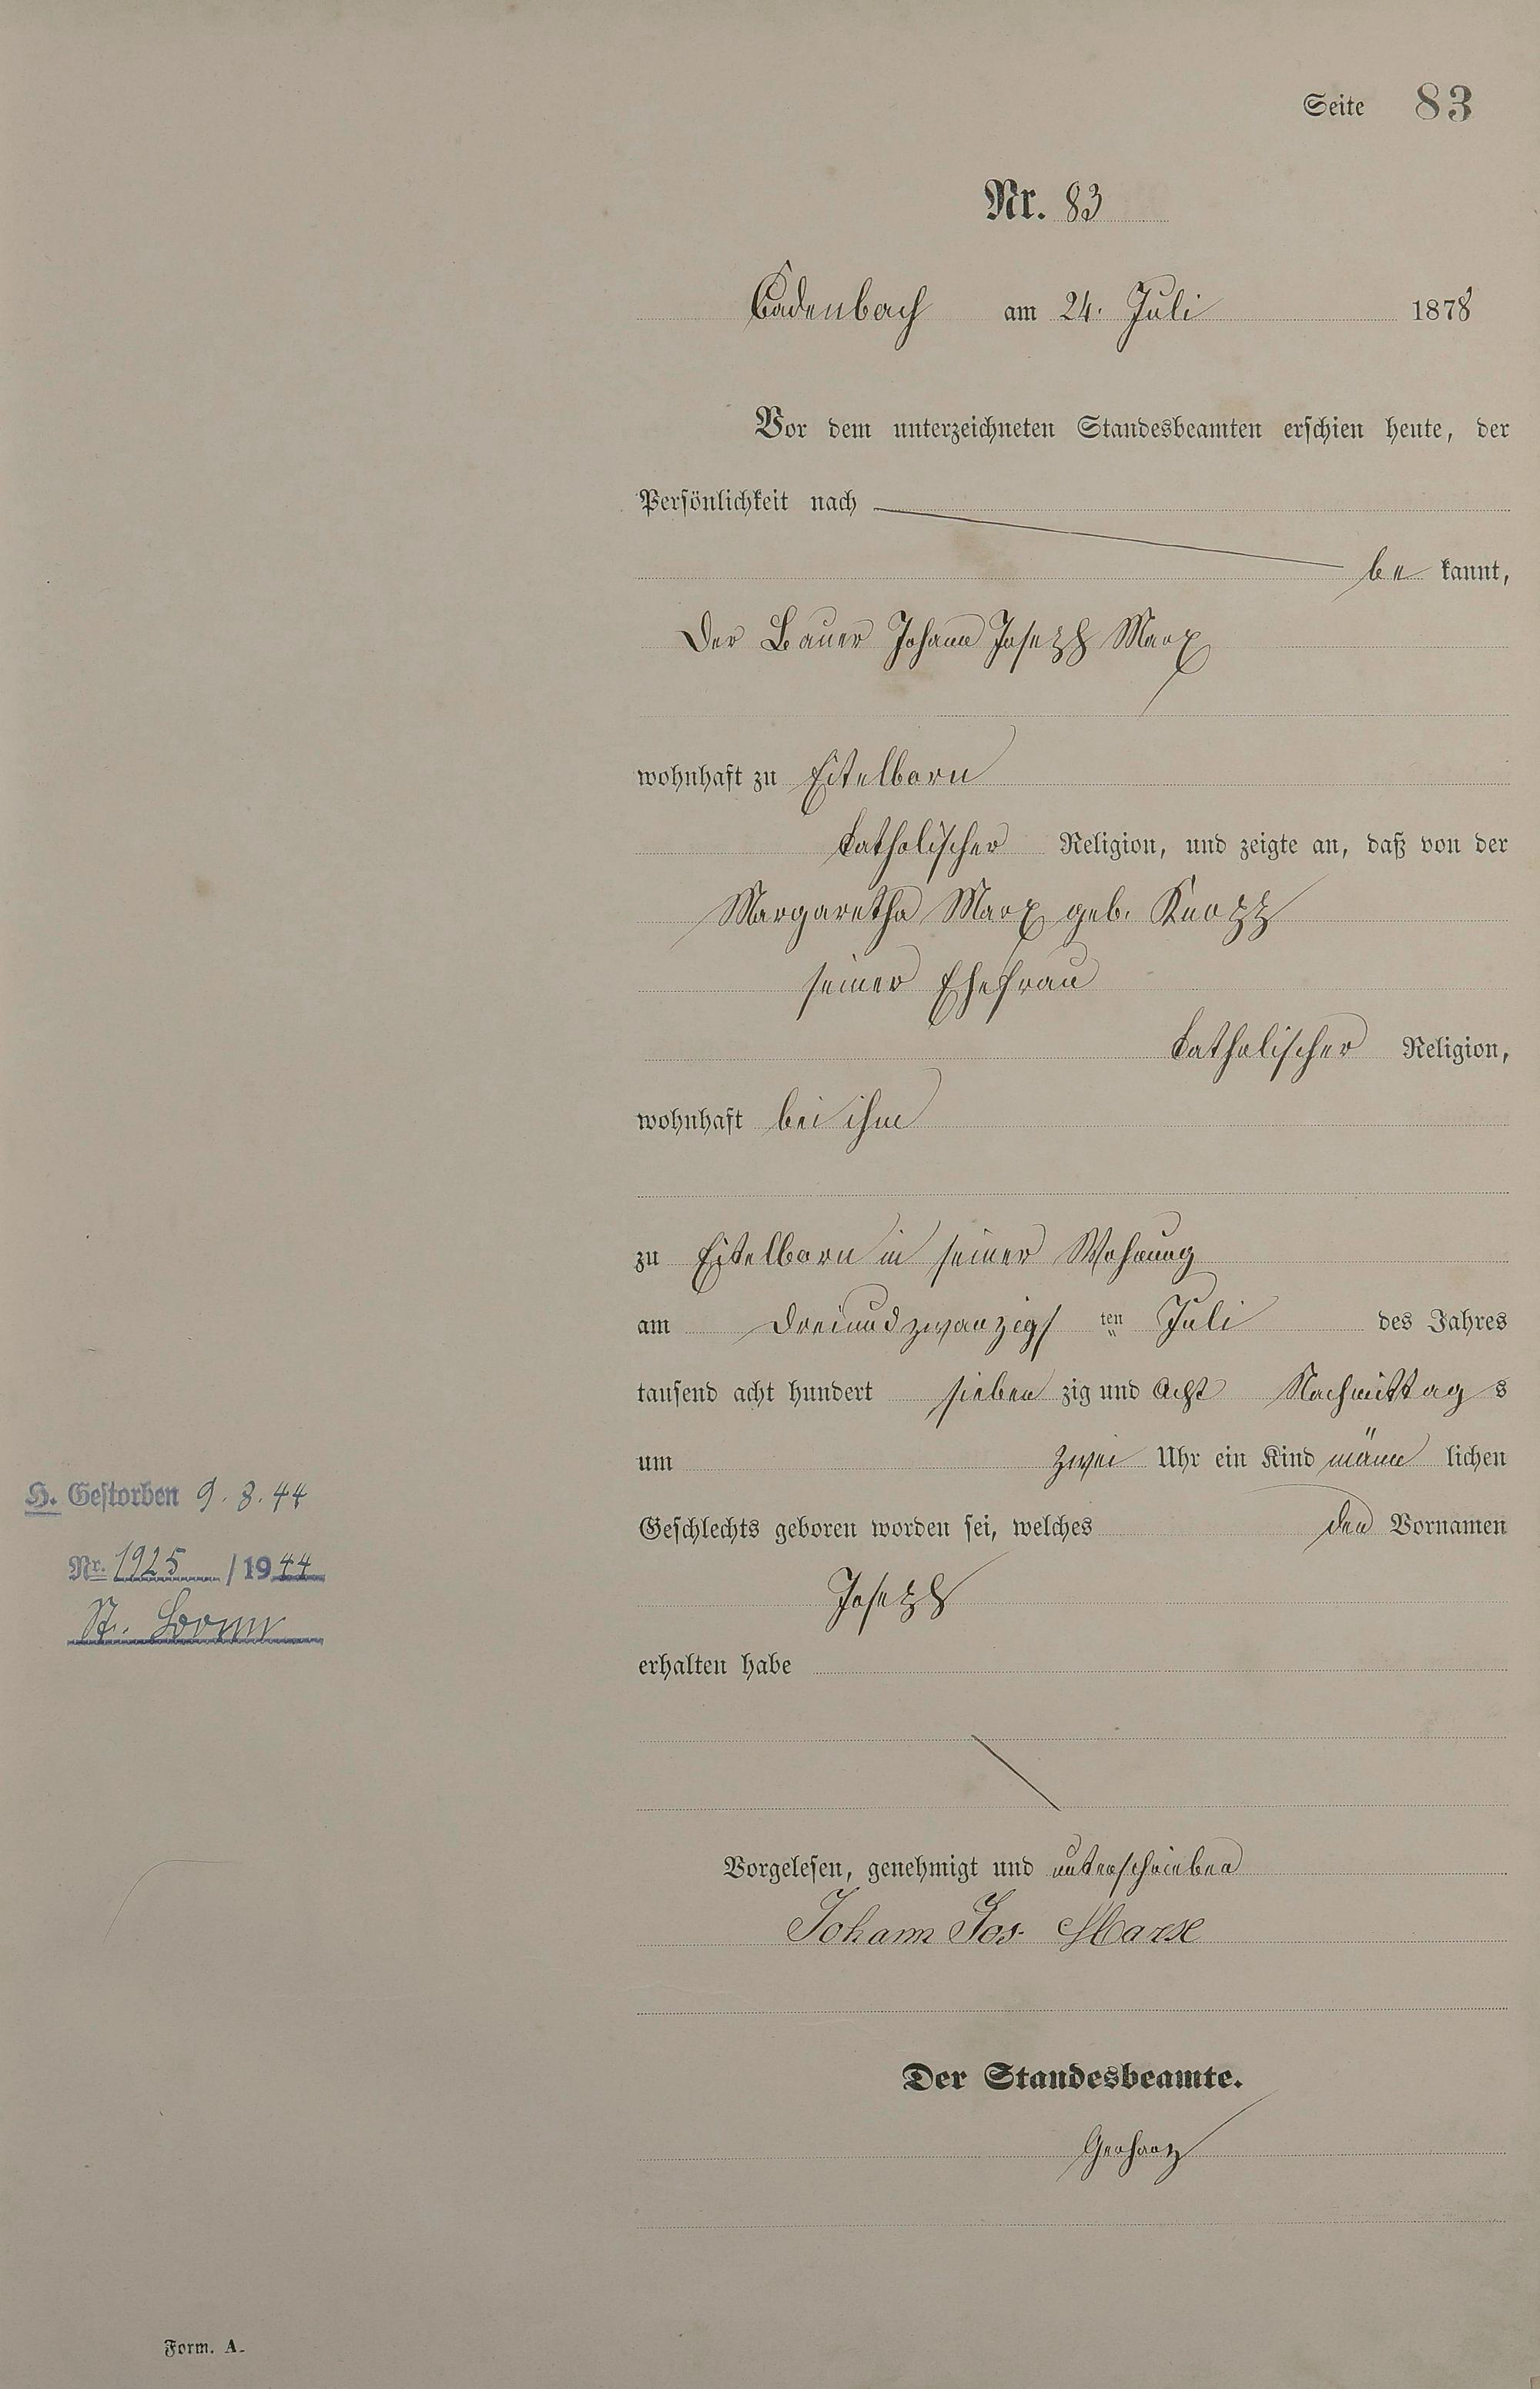 Seite 83
Nr. 83
Cadenbach am 24. Juli 1878
Vor dem unterzeichneten Standesbeamten erschien heute, der
Persönlichkeit nach
be kannt,
Der Bauer Johann Joseph Marx
wohnhaft zu Eitelborn
katholischer Religion, und zeigte an, daß von der
Margaretha Marx geb. Knopp
seiner Ehefrau
katholischer Religion,
wohnhaft bei ihm
zu Eitelborn in seiner Wohnung
am Dreiundzwanzigs ten Juli des Jahres
tausend acht hundert sieben zig und Acht Nachmittag s
um zwei Uhr ein Kind männ lichen
H. Gestorben 9. 8. 44
Geschlechts geboren worden sei, welches den Vornamen
Nr. 1925 / 1944
Joseph
St. Bonn
erhalten habe
Vorgelesen, genehmigt und unterschrieben
Johann Jos. Marx
Der Standesbeamte.
Gerharz
Form. A.